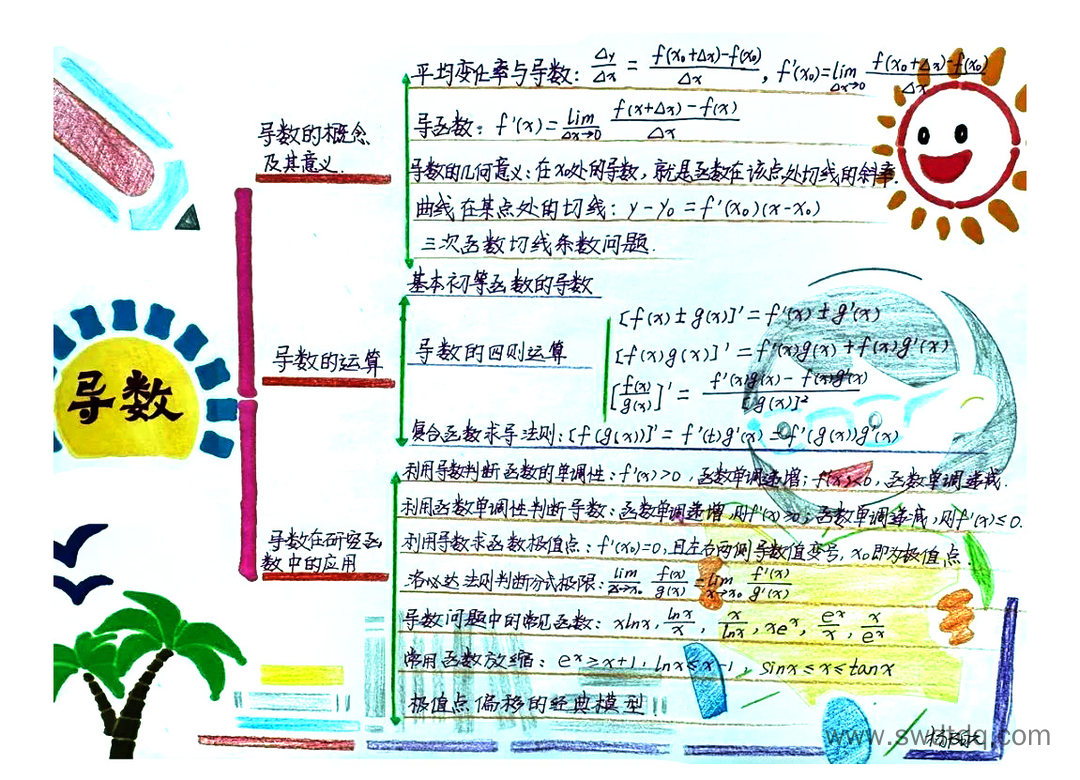 导数
导数的概念
及其意义.
平均变化率与导数: Δy/Δx = f(x₀+Δx)-f(x₀)/Δx, f'(x₀)=lim Δx→0 f(x₀+Δx)-f(x₀)/Δx
导函数: f'(x)=lim Δx→0 f(x+Δx)-f(x)/Δx
导数的几何意义:在x₀处的导数,就是函数在该点处切线的斜率.
曲线在某点处的切线: y-y₀=f'(x₀)(x-x₀)
三次函数切线条数问题.
导数的运算
基本初等函数的导数
导数的四则运算
[f(x)±g(x)]'=f'(x)±g'(x)
[f(x)g(x)]'=f'(x)g(x)+f(x)g'(x)
[f(x)/g(x)]'=f'(x)g(x)-f(x)g'(x)/[g(x)]²
复合函数求导法则:[f(g(x))]'=f'(t)g'(x)=f'(g(x))g'(x)
导数在研究函
数中的应用
利用导数判断函数的单调性:f'(x)>0,函数单调递增;f'(x)<0,函数单调递减.
利用函数单调性判断导数:函数单调递增,则f'(x)≥0;函数单调递减,则f'(x)≤0.
利用导数求函数极值点:f'(x₀)=0,且左右两侧导数值变号,x₀即为极值点.
洛必达法则判断分式极限:lim x→x₀ f(x)/g(x)=lim x→x₀ f'(x)/g'(x)
导数问题中的常见函数: xlnx, lnx/x, x/lnx, xeˣ, eˣ/x, x/eˣ
常用函数放缩: eˣ≥x+1, lnx≤x-1, sinx≤x≤tanx
极值点偏移的经典模型